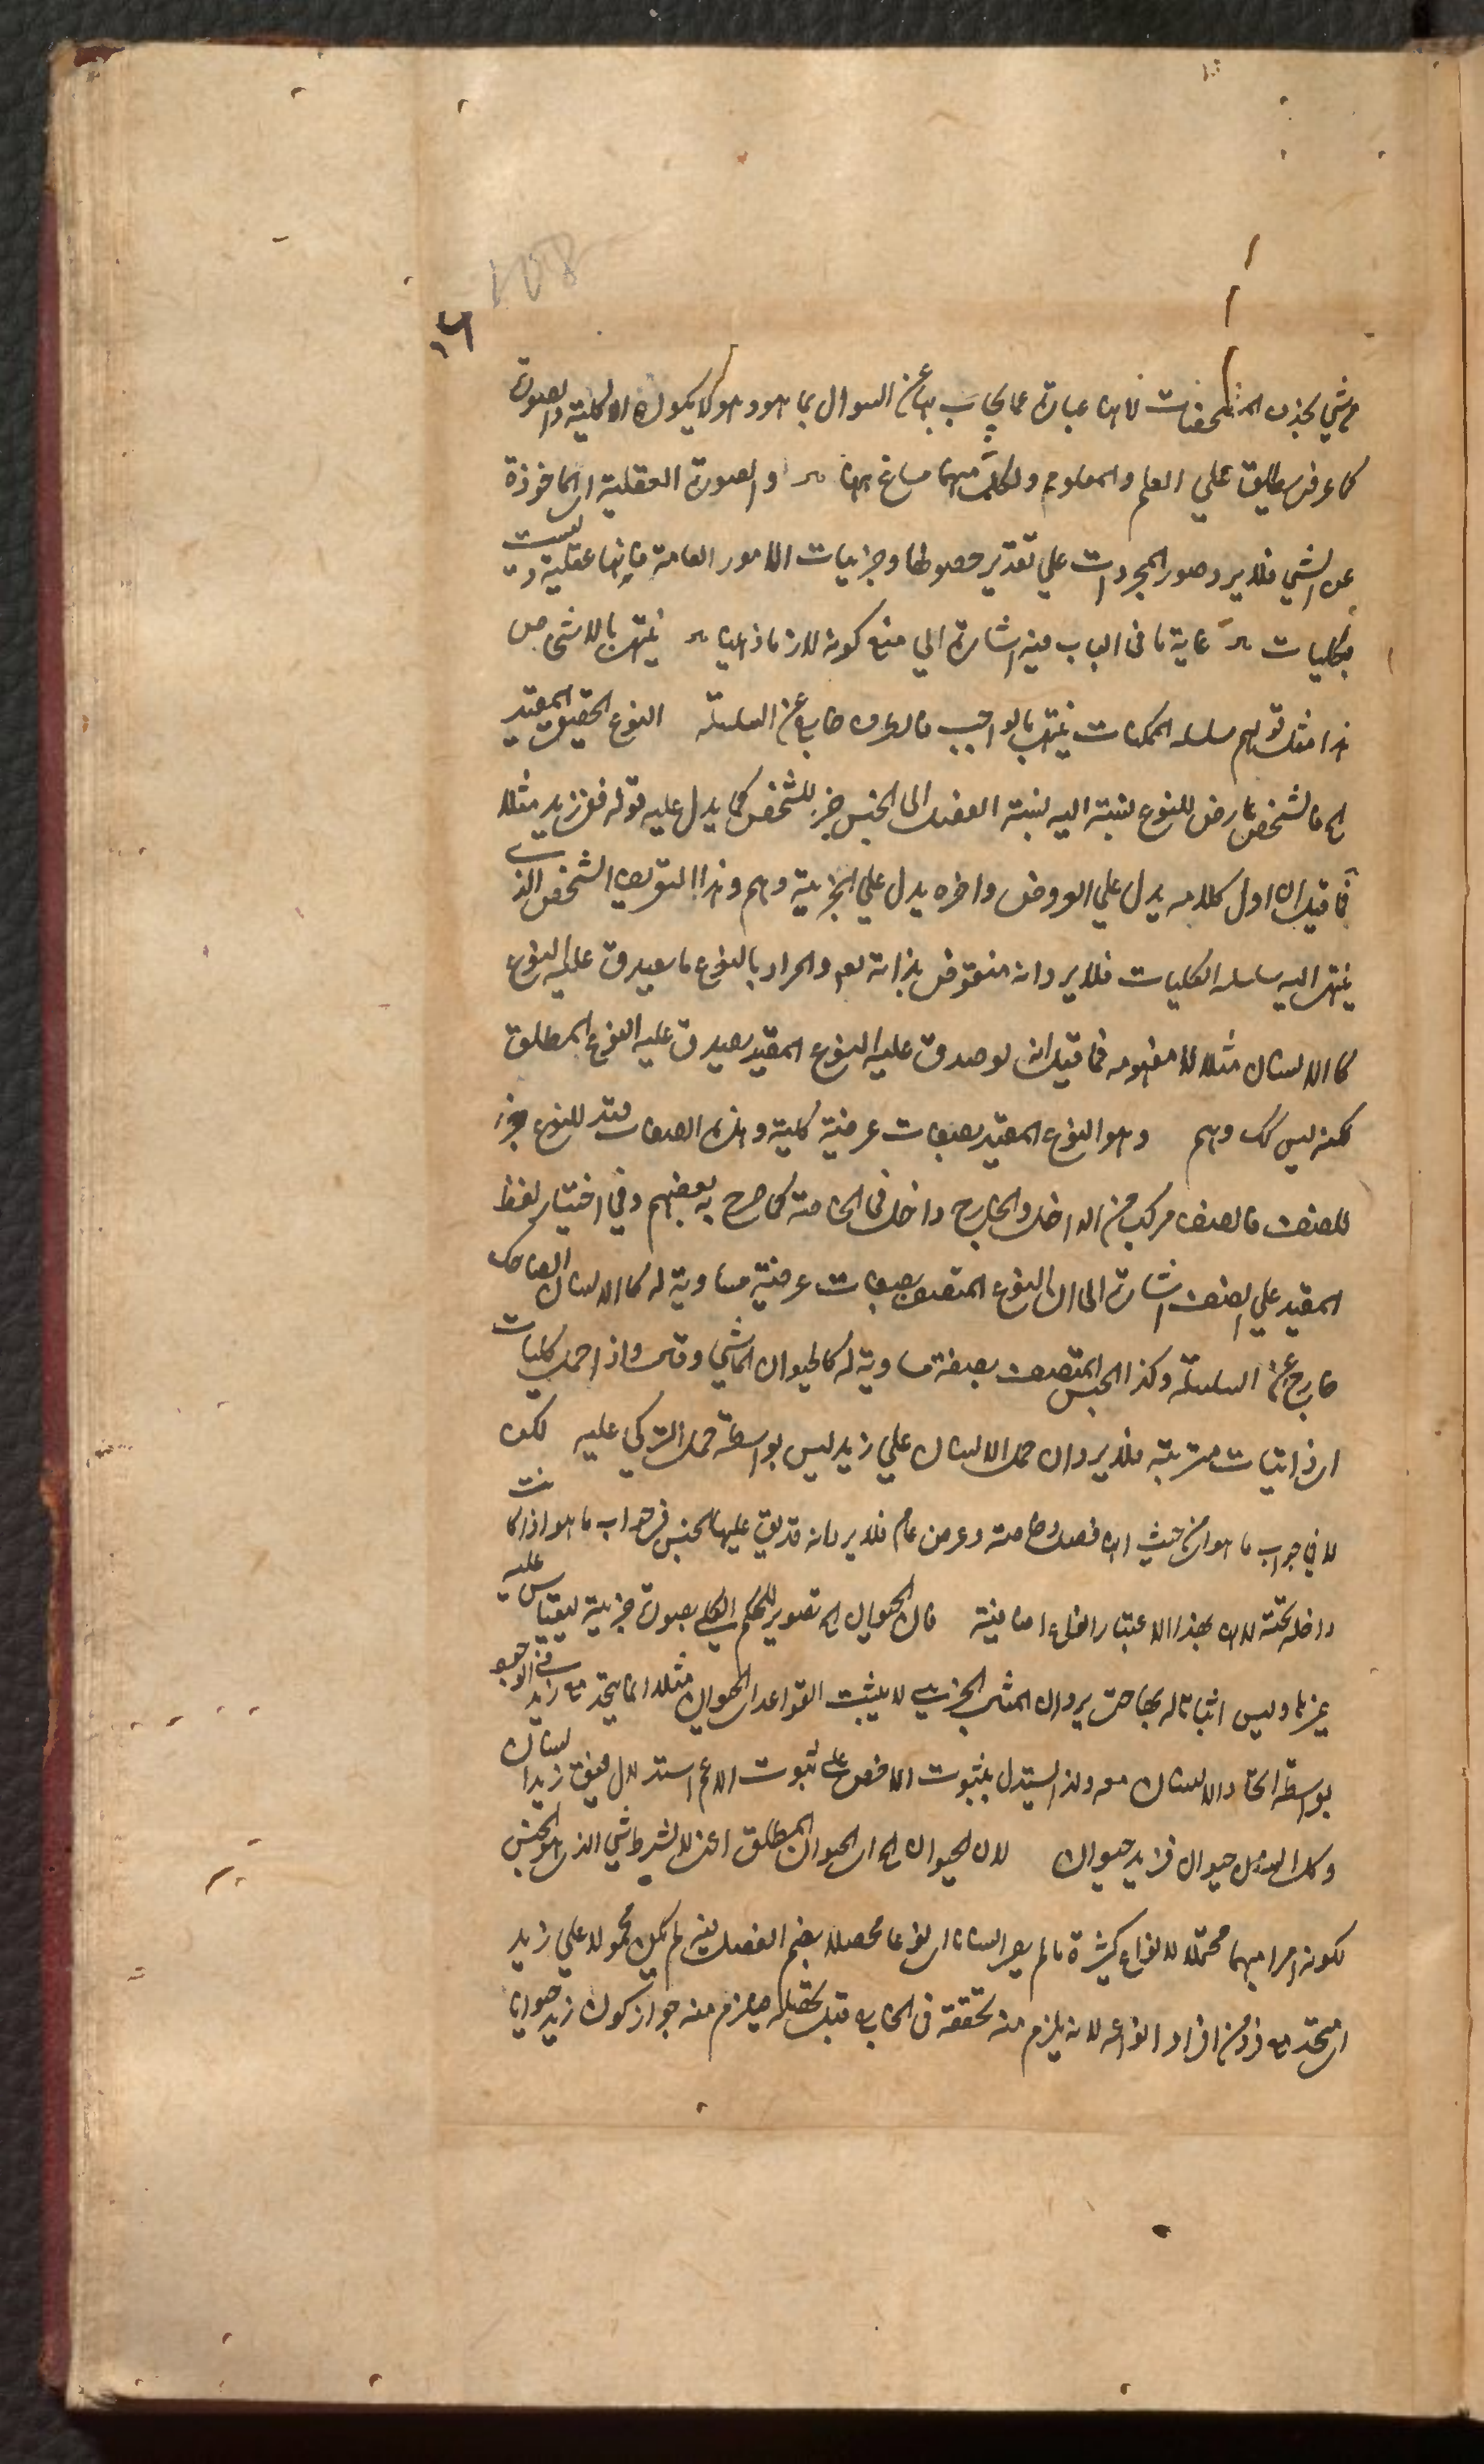 108
١٦
شي بحذف المشخصات لانها عبارة عما يجاب بها عن السوال بما هو وهو لا يكون الا كلية والصورة
كما عرفت يطلق علي العلم والمعلوم ولكل منهما مساغ ههنا والصورة العقلية اي الماخوذة
عن الشي فلا يرد صور المجردات علي تقدير حصولها وجزئيات الامور العامة فانها عقلية وليست
بكليات غاية ما في الباب فيه اشارة الي منع كونه لازما ذهنيا ينتهي بالاشخاص
هذا مثل قولهم سلسلة الممكنات ينتهي بالواجب فالطرف خارج عن السلسلة النوع الحقيقي المقيد
الخ فالشخص عارض للنوع نسبته اليه نسبة الفصل الى الجنس جزء للشخص كما يدل عليه قوله ففي زيد مثلا
فما قيل ان اول كلامه يدل علي العروض واخره يدل علي الجزئية وهم وهذا التعريف الشخص الذي
ينتهي اليه سلسلة الكليات فلا يرد انه منقوض بذاته تعم والمراد بالنوع ما يصدق عليه النوع
كالانسان مثلا لا مفهومه فما قيل انه لو صدق عليه النوع المقيد يصدق عليه النوع المطلق
لكنه ليس كك وهم وهو النوع المقيد بصفات عرضية كلية وهذه الصفات قيد للنوع جزء
للصنف فالصنف مركب من الداخل والخارج داخل في الخاصة كما صرح به بعضهم وفي اختيار لفظ
المقيد علي الصنف اشارة الى ان النوع المتصف بصفات عرضية مساوية له كالانسان الضاحك
خارج عن السلسلة وكذا الجنس المتصف بصفة مساوية له كالحيوان الماشي واذا حمل كليات
اي ذاتيات مترتبة فلا يرد ان حمل الانسان علي زيد ليس بواسطة حمل التركي عليه لكن
لا في جواب ما هو اي من حيث انها فصل وخاصة وعرض عام فلا يرد انه قد يق عليها الجنس في جواب ما هو اذا كانت
داخلة تحته لانه بهذا الاعتبار انواع اضافية فان الحيوان الخ تصوير للحكم الكلي بصورة جزئية ليقاس عليه
غيرها وليس اثباتا له بها حتى يرد ان المثال الجزئي لا يثبت القواعد اي الحيوان مثلا انما يتحد مع زيد في الوجود
بواسطة اتحاد الانسان معه ولذا يستدل بثبوت الاخص علي ثبوت الاعم استدلال فيق زيد انسان
وكل انسان حيوان فزيد حيوان لان الحيوان الخ اي الحيوان المطلق اعني لا بشرط شي الذي هو الجنس
لكونه امرا مبهما محتملا لانواع كثيرة ما لم يصر انسانا اي نوعا محصلا بضم الفصل اليه لم يكن محمولا علي زيد
اي متحد مع فرد من افراد انواعه لانه يلزم منه تحققه في الخارج قبل تحصله فيلزم منه جواز كون زيد حيوانا